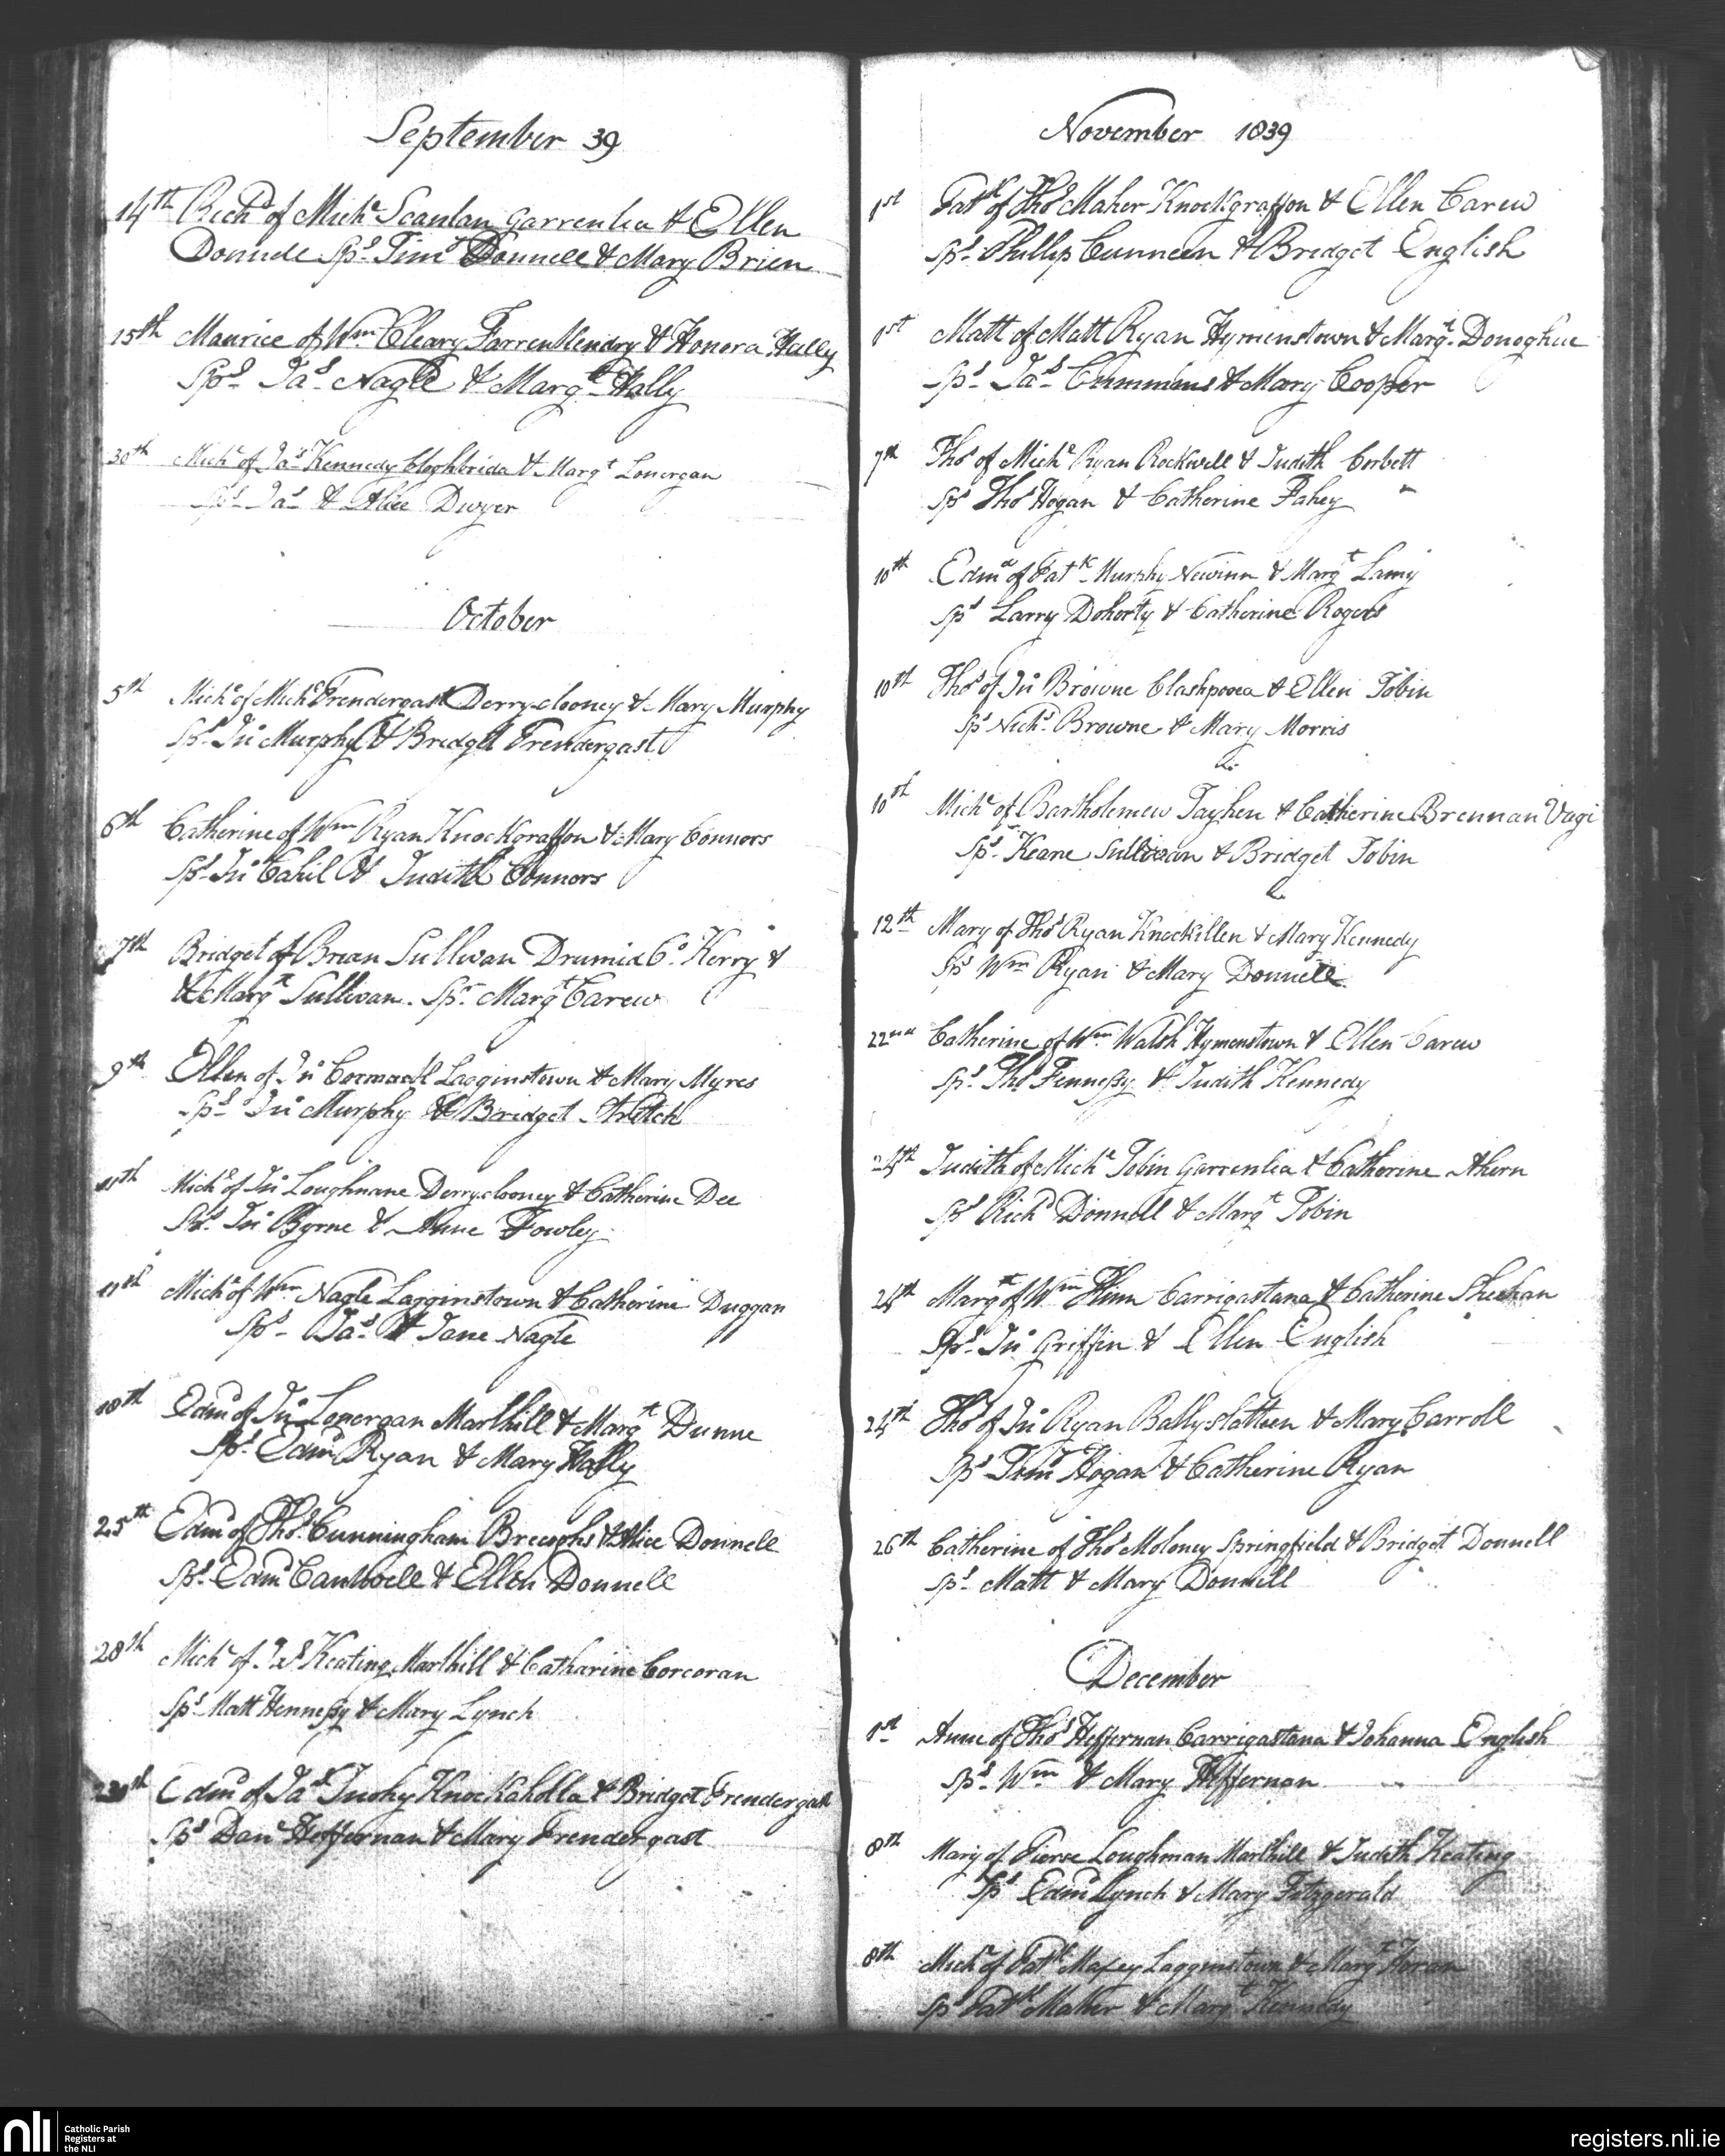 September 39
14th Richd of Michl Scanlan Garrenlea & Ellen
Donnell Sps Timy Donnell & Mary Brien
15th Maurice of Wm Cleary Farrenkendry & Honora Hally
Sps Jas Nagle & Margt Hally
30th Michl of Jas Kennedy Cloghbrida & Margt Lonergan
Sps Jas & Alice Dwyer
October
5th Michl of Michl Prendergast Derryclooney & Mary Murphy
Sps Jno Murphy & Bridget Prendergast
6th Catherine of Wm Ryan Knockgraffon & Mary Connors
Sps Jno Cahil & Judith Connors
7th Bridget of Brian Sullivan Drumid Co. Kerry &
& Margt Sullivan. Spr Margt Carew
9th Ellen of Jno Cormack Lagginstown & Mary Myres
Sps Jno Murphy & Bridget Stretch
11th Michl of Jno Loughnane Derryclooney & Catherine Dee
Sps Jno Byrne & Anne Fowley
11th Michl of Wm Nagle Lagginstown & Catherine Duggan
Sps Jas & Jane Nagle
18th Edmd of Jno Lonergan Marlhill & Margt Dunne
Sps Edmd Ryan & Mary Hally
25th Edmd of Thos Cunningham & Alice Donnell
Sps Edmd Cantwell & Ellen Donnell
28th Michl of Jas Keating Marlhill & Catharine Corcoran
Sps Matt Hennessy & Mary Lynch
Edmd of Jas Tuohy Knockaholla & Bridget Prendergast
Sps Danl Heffernan & Mary Prendergast
November 1839
1st Patk of Thos Maher Knockgraffon & Ellen Carew
Sps Phillip Cunneen & Bridget English
1st Matt of Matt Ryan Hymenstown & Margt Donoghue
Sps Jas Cummins & Mary Cooper
7th Thos of Michl Ryan Rockwell & Judith Corbett
Sps Thos Hogan & Catherine Fahey
10th Edmd of Patk Murphy Newinn & Margt Lamy
Sps Larry Dohorty & Catherine Rogers
10th Thos of Jno Browne Clashpooca & Ellen Tobin
Sps Nichs Browne & Mary Morris
10th Michl of Bartholemew Tayhen & Catherine Brennan Vagi
Sps Keane Sullivan & Bridget Tobin
12th Mary of Thos Ryan Knockillen & Mary Kennedy
Sps Wm Ryan & Mary Donnell
22nd Catherine of Wm Walsh Hymenstown & Ellen Carew
Sps Thos Fennessy & Judith Kennedy
24th Judith of Michl Tobin Garrenlea & Catherine Ahern
Sps Richd Donnell & Margt Tobin
24th Margt of Wm Flinn Carrigastana & Catherine Sheehan
Sps Jno Griffin & Ellen English
24th Thos of Jno Ryan Ballyslatteen & Mary Carroll
Sps Timy Hogan & Catherine Ryan
26th Catherine of Thos Moloney Springfield & Bridget Donnell
Sps Matt & Mary Donnell
December
1st Anne of Thos Heffernan Carrigastana & Johanna English
Sps Wm & Mary Heffernan
8th Mary of Pierse Loughman Marlhill & Judith Keating
Sps Edmd Lynch & Mary Fitzgerald
8th Michl of Patk Maxey Lagginstown & Margt Horan
Sps Patk Maher & Margt Kennedy
nli
Catholic Parish
Registers at
the NLI
registers.nli.ie